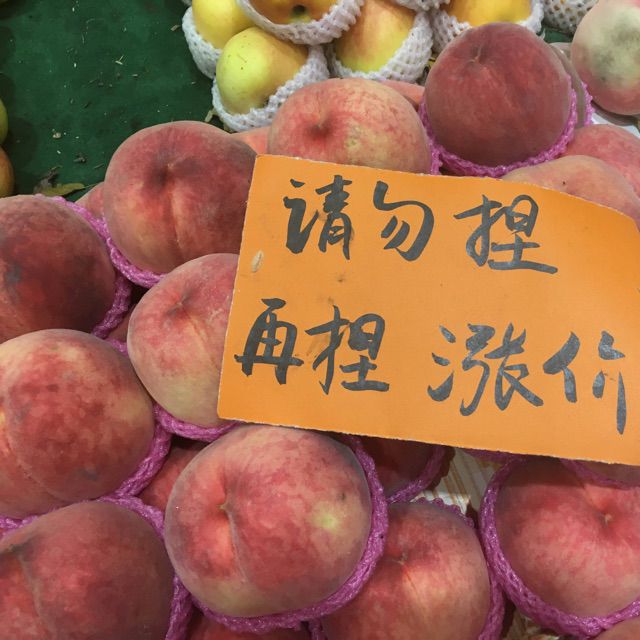 请勿捏
再捏涨价